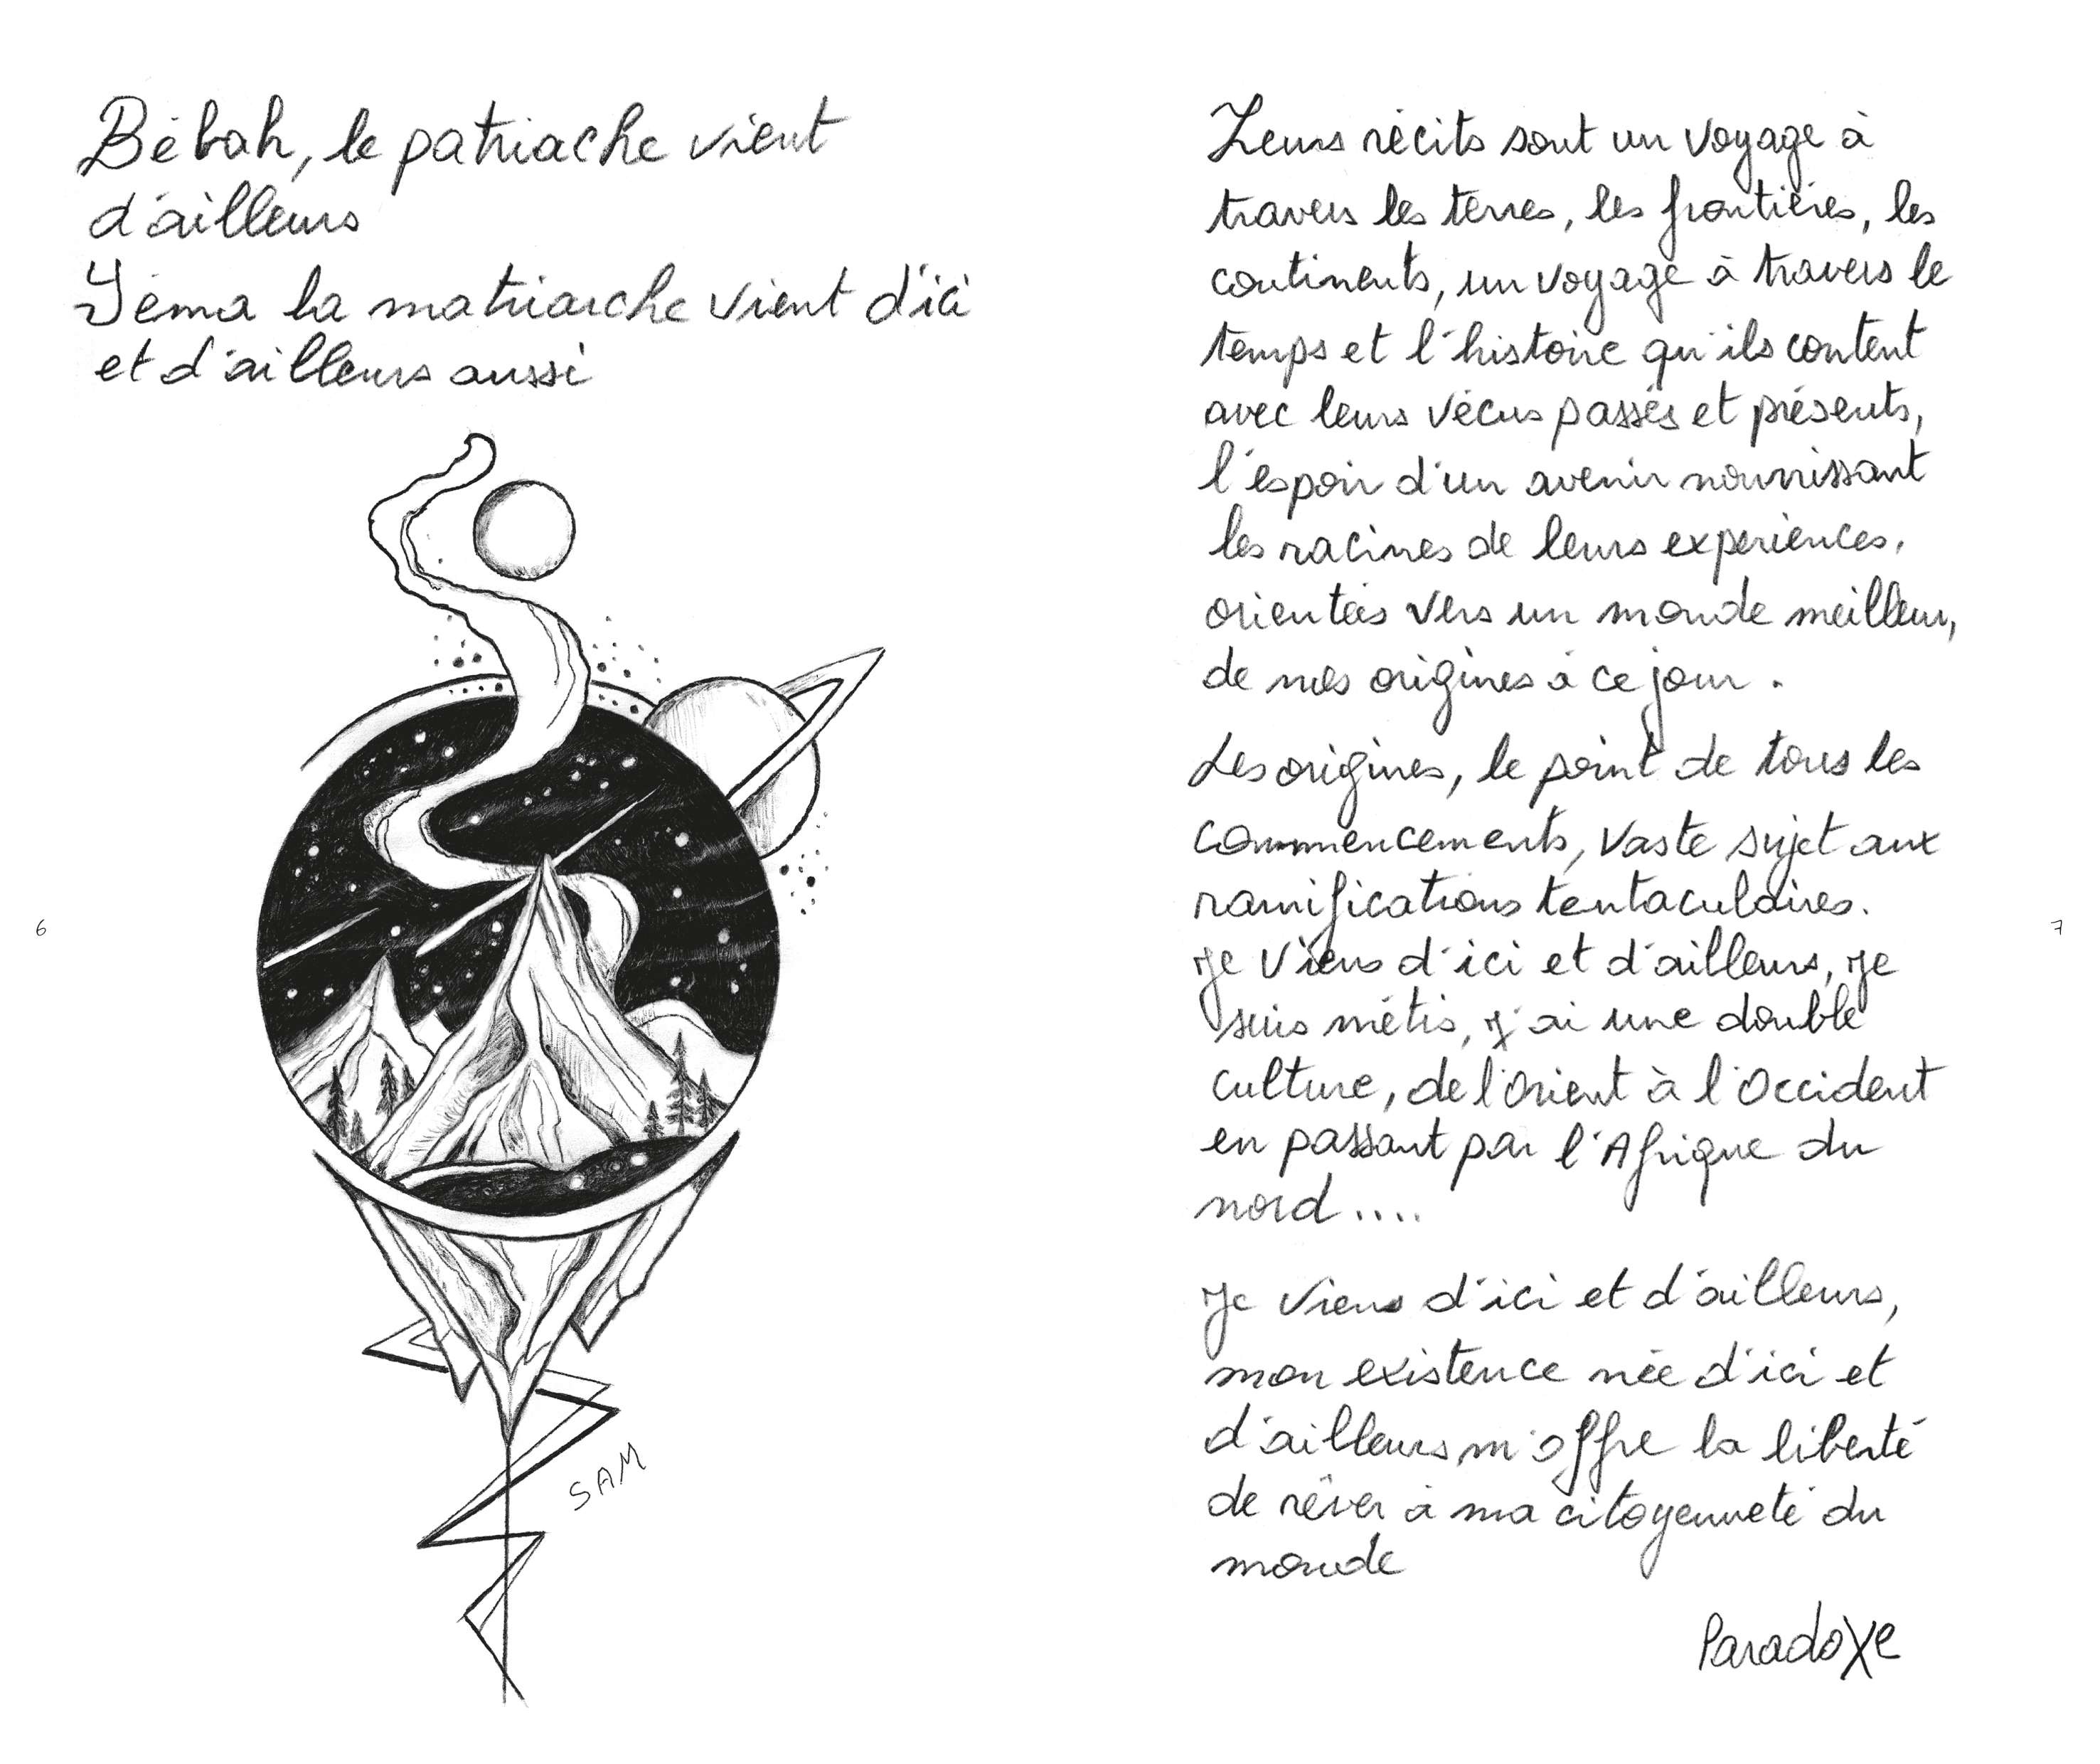 Bébah, le patriache vient
d'ailleurs
Yéma la matriarche vient d'ici
et d'ailleurs aussi
SAM
6
Leurs récits sont un voyage à
travers les terres, les frontières, les
continents, un voyage à travers le
temps et l'histoire qu'ils content
avec leurs vécus passés et présents,
l'espoir d'un avenir nourrissant
les racines de leurs expériences,
orientés vers un monde meilleur,
de nos origines à ce jour.
Les origines, le point de tous les
commencements, vaste sujet aux
ramifications tentaculaires.
Je viens d'ici et d'ailleurs, je
suis métis, j'ai une double
culture, de l'Orient à l'Occident
en passant par l'Afrique du
nord....
Je viens d'ici et d'ailleurs,
mon existence née d'ici et
d'ailleurs m'offre la liberté
de rêver à ma citoyenneté du
monde
Paradoxe
7